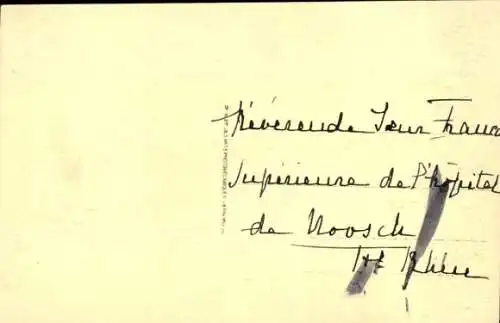 Révérende Sœur Franc
Supérieure de l'hôpital
de Moosch
Ht Rhin